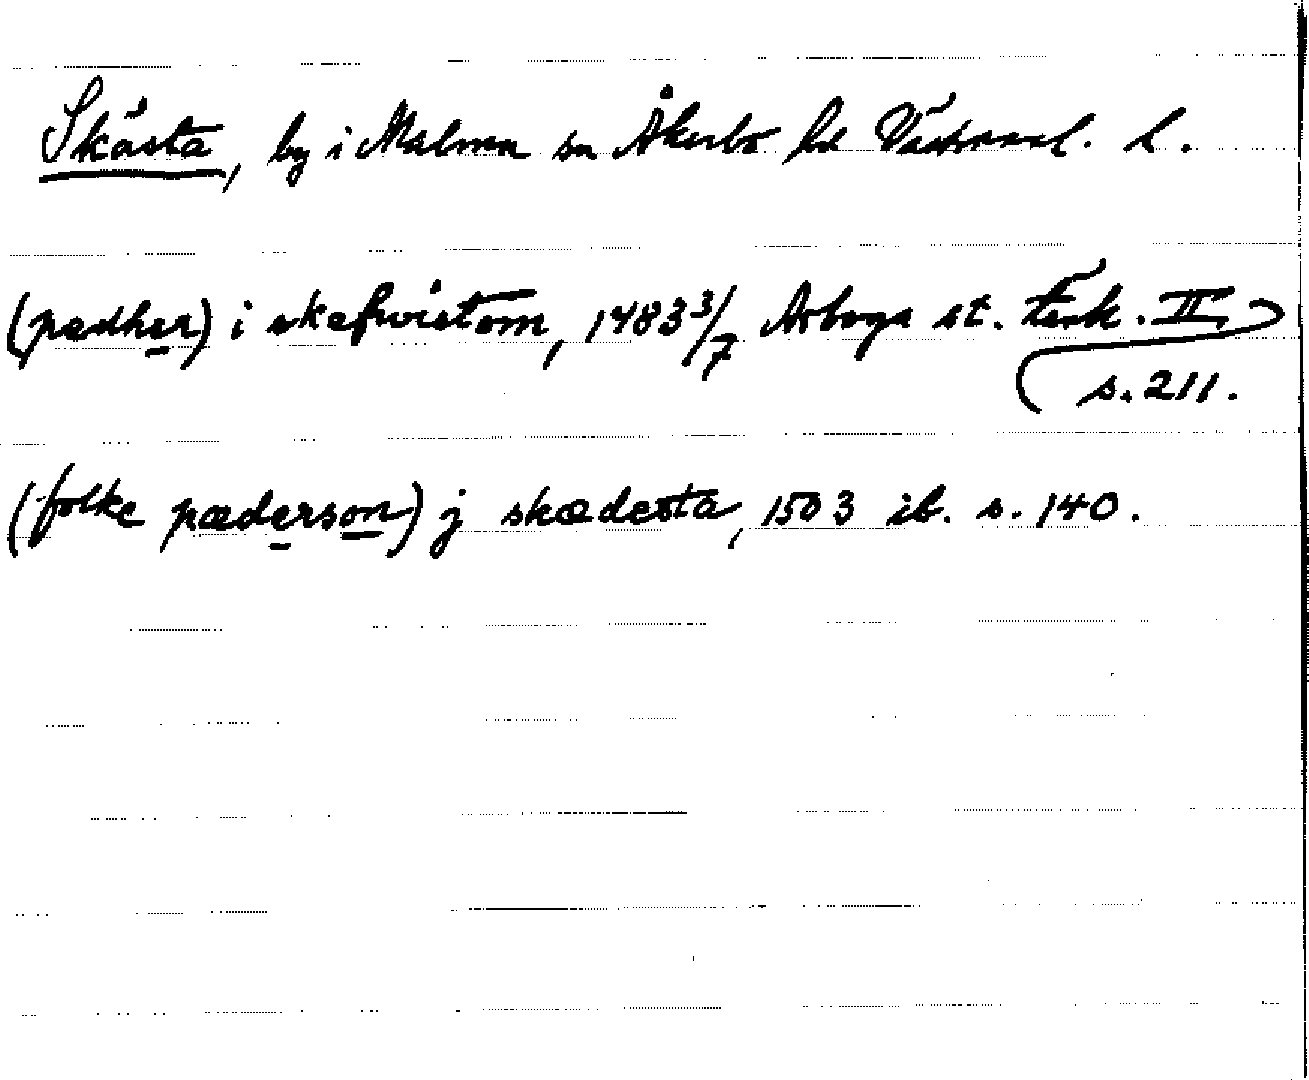 Skästa, by i Malma sn Åkerbo hd Västmanl. l.
(pædher) i skefwistom, 1483 3/7 Arboga st. Tänk. II,
s. 211.
(folke pæderson) j skædesta, 1503 ib. s. 140.